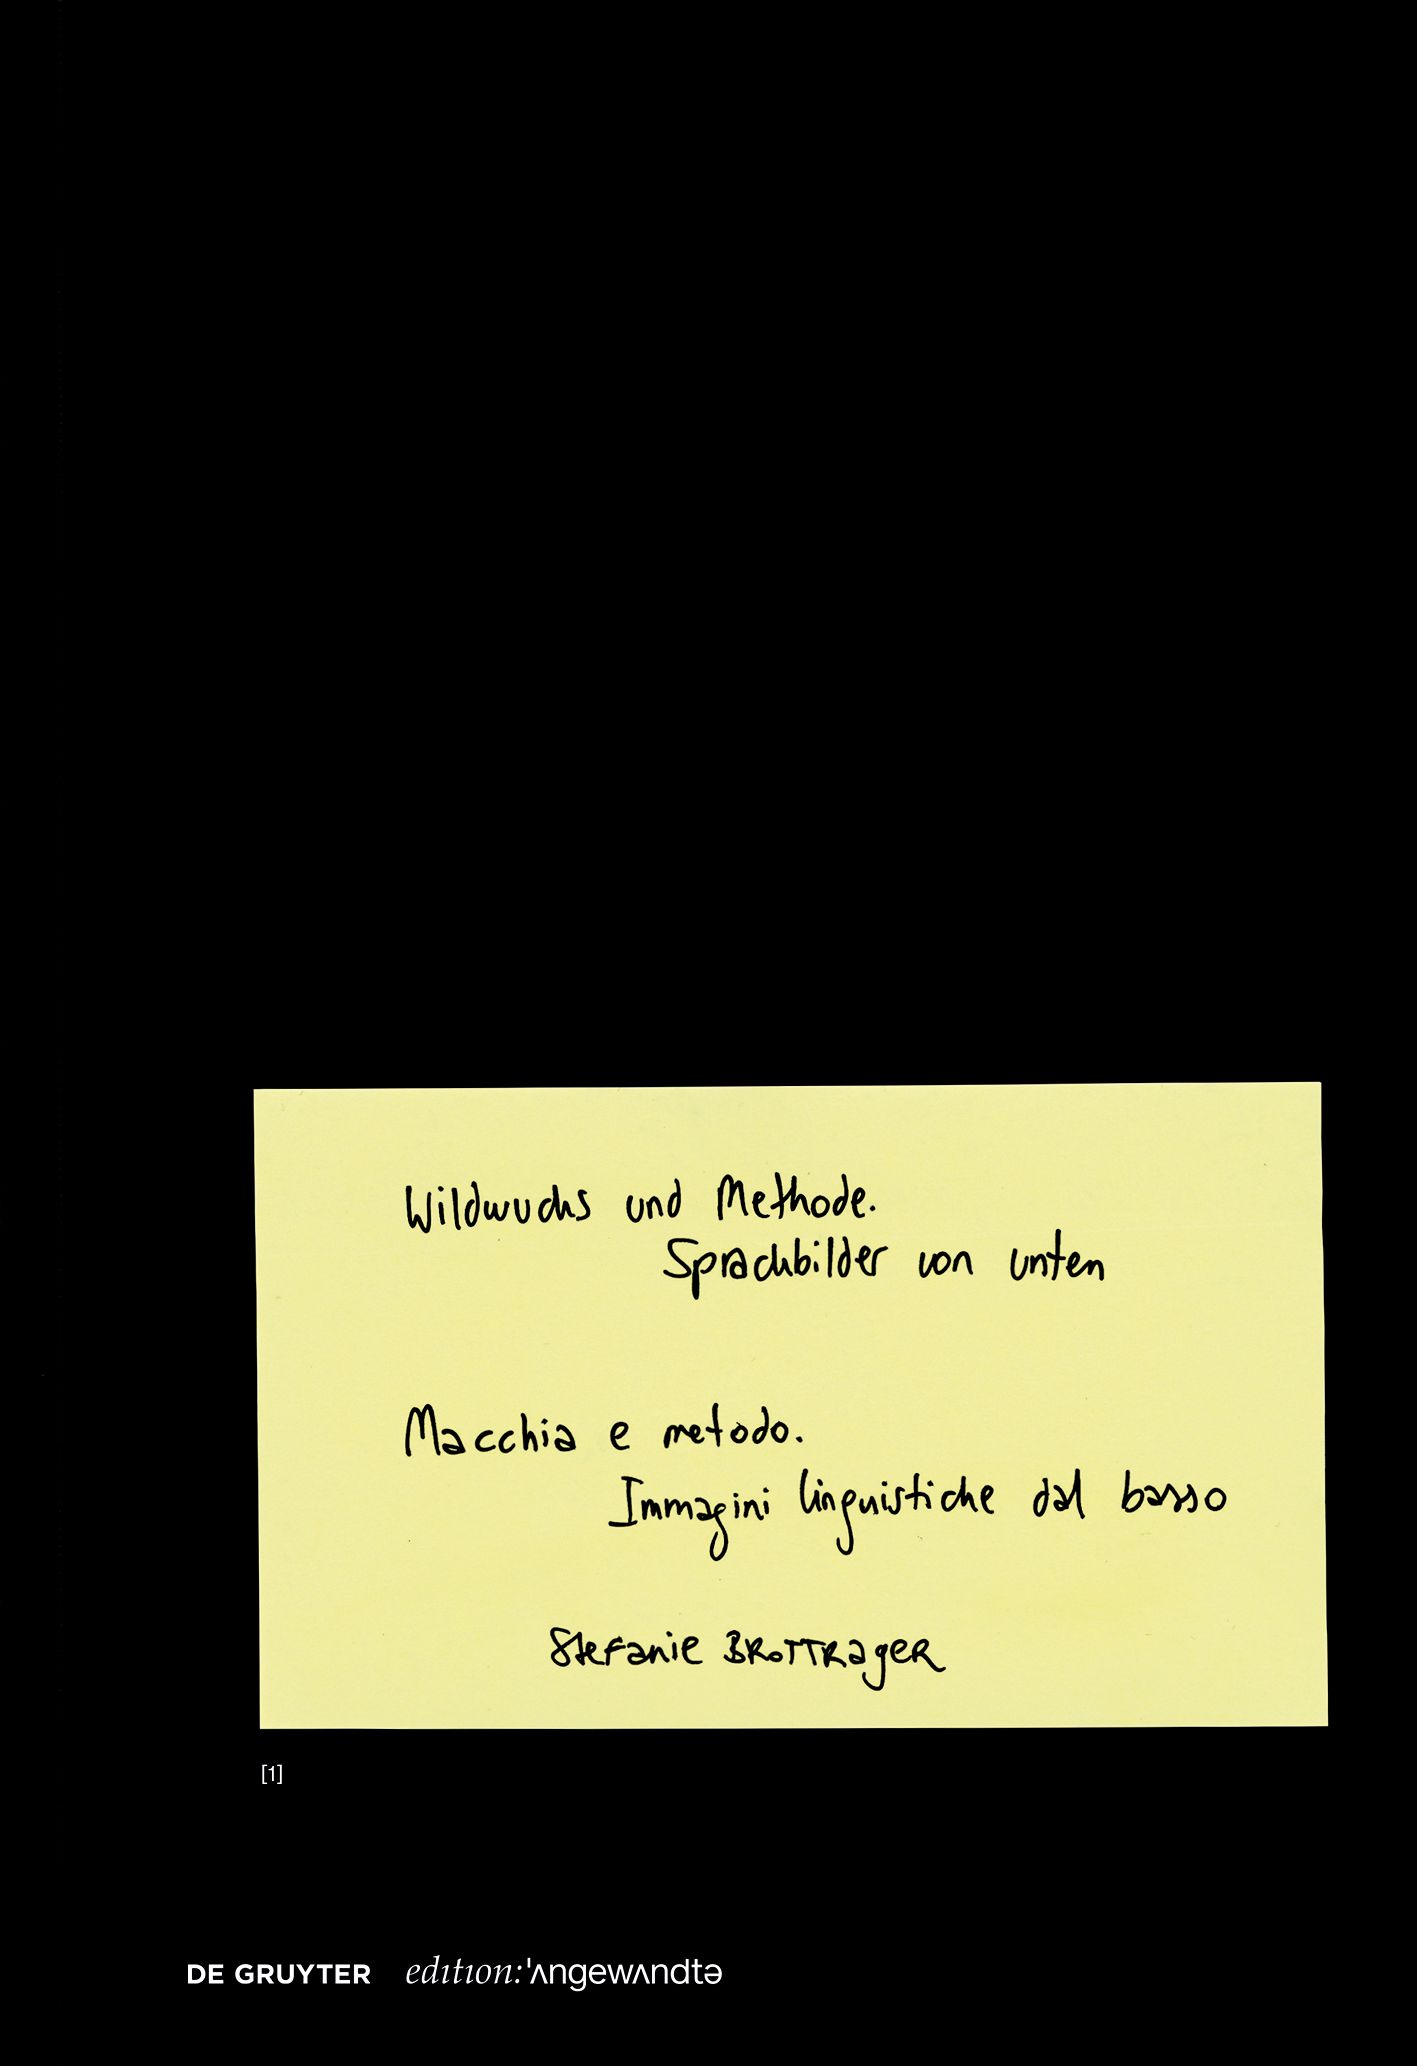 Wildwuchs und Methode.
Sprachbilder von unten
Macchia e metodo.
Immagini linguistiche dal basso
Stefanie BROTTRageR
[1]
DE GRUYTER edition:'ʌngewʌndtə